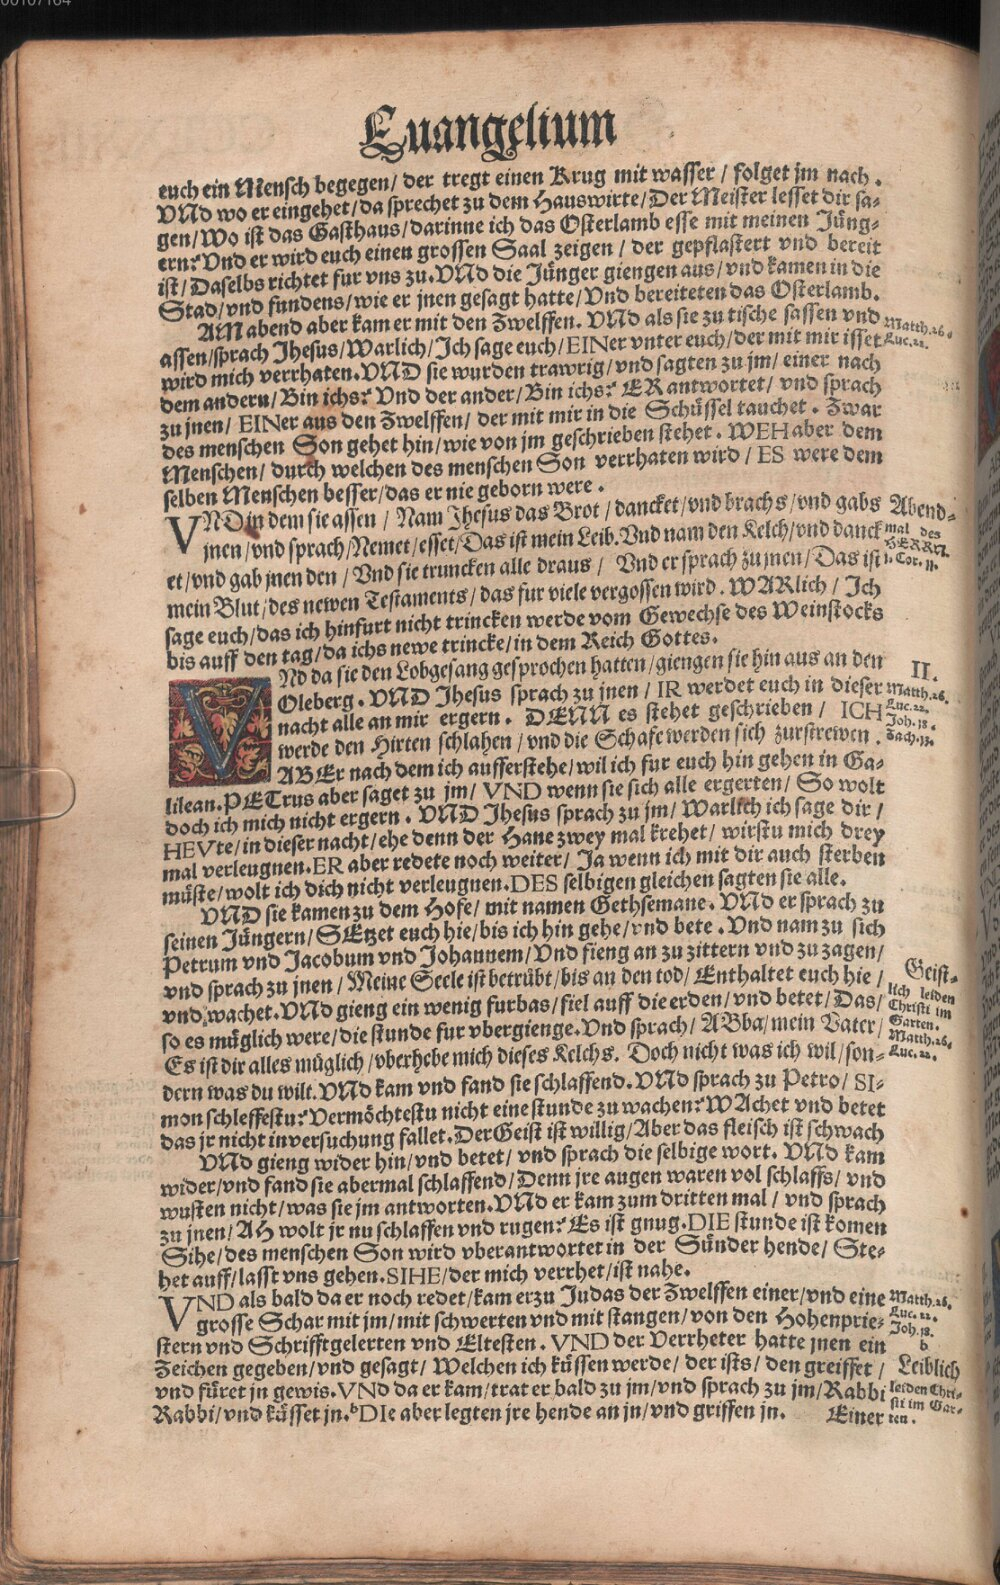 00107164
Euangelium
euch ein Mensch begegen/ der tregt einen Krug mit wasser / folget jm nach.
VNd wo er eingehet/da sprechet zu dem Hauswirte/Der Meister lesset dir sa⸗
gen/Wo ist das Gasthaus/darinne ich das Osterlamb esse mit meinen Jüng⸗
ern? Vnd er wird euch einen grossen Saal zeigen / der gepflastert vnd bereit
ist/ Daselbs richtet fur vns zu. VNd die Jünger giengen aus/vnd kamen in die
Stad/vnd fundens/wie er jnen gesagt hatte/Vnd bereiteten das Osterlamb.
AM abend aber kam er mit den Zwelffen. VNd als sie zu tische sassen vnd
Matth.26.
Luc.22.
assen/sprach Jhesus/Warlich/Ich sage euch/EINer vnter euch/der mit mir isset
wird mich verrhaten. VND sie wurden trawrig/vnd sagten zu jm/ einer nach
dem andern/Bin ichs? Vnd der ander/Bin ichs? ER antwortet/ vnd sprach
zu jnen/ EINer aus den Zwelffen/ der mit mir in die Schüssel tauchet. Zwar
des menschen Son gehet hin/wie von jm geschrieben stehet. WEH aber dem
Menschen/ durch welchen des menschen Son verrhaten wird / ES were dem
selben Menschen besser/das er nie geborn were.
VND in dem sie assen / Nam Jhesus das Brot / dancket/vnd brachs/vnd gabs
Abend⸗
mal des
HERRN.
1. Cor. 11.
jnen/vnd sprach/Nemet/esset/Das ist mein Leib. Vnd nam den Kelch/vnd danck
et/vnd gab jnen den / Vnd sie truncken alle draus / Vnd er sprach zu jnen/Das ist
mein Blut/des newen Testaments/das fur viele vergossen wird. WARlich / Ich
sage euch/das ich hinfurt nicht trincken werde vom Gewechse des Weinstocks
bis auff den tag/da ichs newe trincke/in dem Reich Gottes.
VNd da sie den Lobgesang gesprochen hatten/giengen sie hin aus an den
II.
Matth.26.
Luc.22.
Joh.18.
Zach.13.
Oleberg. VND Jhesus sprach zu jnen / IR werdet euch in dieser
nacht alle an mir ergern. DENN es stehet geschrieben / ICH
werde den Hirten schlahen/vnd die Schafe werden sich zurstrewen.
ABEr nach dem ich aufferstehe/wil ich fur euch hin gehen in Ga⸗
lilean. PETrus aber saget zu jm/ VND wenn sie sich alle ergerten/ So wolt
doch ich mich nicht ergern. VND Jhesus sprach zu jm/ Warlich ich sage dir /
HEVte/in dieser nacht/ehe denn der Hane zwey mal krehet/ wirstu mich drey
mal verleugnen. ER aber redete noch weiter/ Ja wenn ich mit dir auch sterben
müste/wolt ich dich nicht verleugnen. DES selbigen gleichen sagten sie alle.
VND sie kamen zu dem Hofe/ mit namen Gethsemane. VNd er sprach zu
seinen Jüngern/SEtzet euch hie/bis ich hin gehe/vnd bete. Vnd nam zu sich
Petrum vnd Jacobum vnd Johannem/Vnd fieng an zu zittern vnd zu zagen/
vnd sprach zu jnen/Meine Seele ist betrübt/bis an den tod/ Enthaltet euch hie /
Geist⸗
lich leiden
Christi im
Garten.
Matth.26.
Luc.22.
vnd wachet. VNd gieng ein wenig furbas/fiel auff die erden/vnd betet/Das/
so es müglich were/die stunde fur vbergienge. Vnd sprach/ ABba/mein Vater/
Es ist dir alles müglich/vberhebe mich dieses Kelchs. Doch nicht was ich wil/son⸗
dern was du wilt. VNd kam vnd fand sie schlaffend. VNd sprach zu Petro/ SI⸗
mon schleffestu? Vermöchtestu nicht eine stunde zu wachen? WAchet vnd betet
das jr nicht in versuchung fallet. Der Geist ist willig/Aber das fleisch ist schwach
VNd gieng wider hin/vnd betet/ vnd sprach die selbige wort. VNd kam
wider/vnd fand sie abermal schlaffend/Denn jre augen waren vol schlaffs/ vnd
wusten nicht/was sie jm antworten. VNd er kam zum dritten mal / vnd sprach
zu jnen/AH wolt jr nu schlaffen vnd rugen? Es ist gnug. DIE stunde ist komen
Sihe/des menschen Son wird vberantwortet in der Sünder hende/ Ste⸗
het auff/lasst vns gehen. SIHE/der mich verrhet/ist nahe.
VND als bald da er noch redet/kam erzu Judas der Zwelffen einer/vnd eine
Matth.26.
Luc.22.
Joh.18.
b
Leiblich
leiden Chri⸗
sti im Gar⸗
ten.
grosse Schar mit jm/mit schwerten vnd mit stangen/von den Hohenprie⸗
stern vnd Schrifftgelerten vnd Eltesten. VND der Verrheter hatte jnen ein
Zeichen gegeben/vnd gesagt/ Welchen ich küssen werde/ der ists/ den greiffet /
vnd füret jn gewis. VNd da er kam/trat er bald zu jm/vnd sprach zu jm/Rabbi
Rabbi/vnd küsset jn. bDIe aber legten jre hende an jn/vnd griffen jn.
Einer